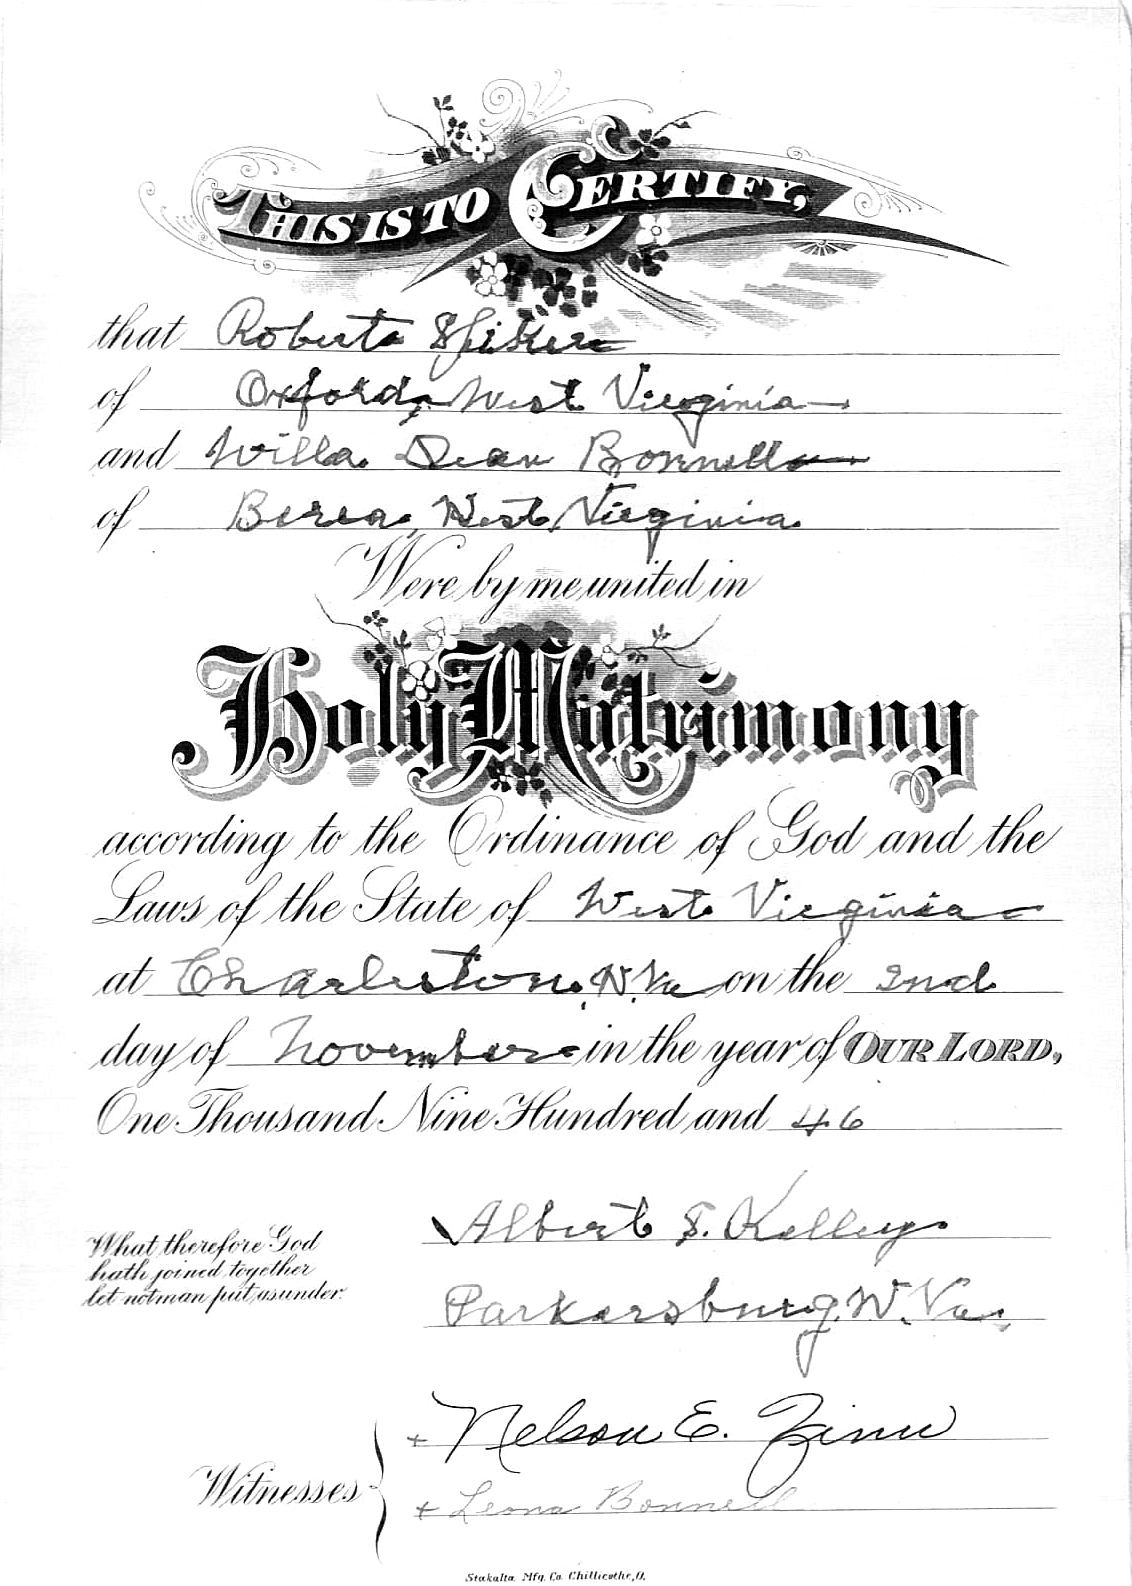 THIS IS TO CERTIFY,
that Roberta Spiker
of Oxford, West Virginia
and Willa Dean Bonnell
of Berea, West Virginia
Were by me united in
Holy Matrimony
according to the Ordinance of God and the
Laws of the State of West Virginia
at Charleston, W. Va on the 2nd
day of November in the year of OUR LORD,
One Thousand Nine Hundred and 46
Albert S. Kelley
What therefore God
hath joined together
let not man put asunder.
Parkersburg, W. Va.
+ Nelson E. Zinn
Witnesses
+ Leona Bonnell
Stakalta Mfg. Co. Chillicothe, O.